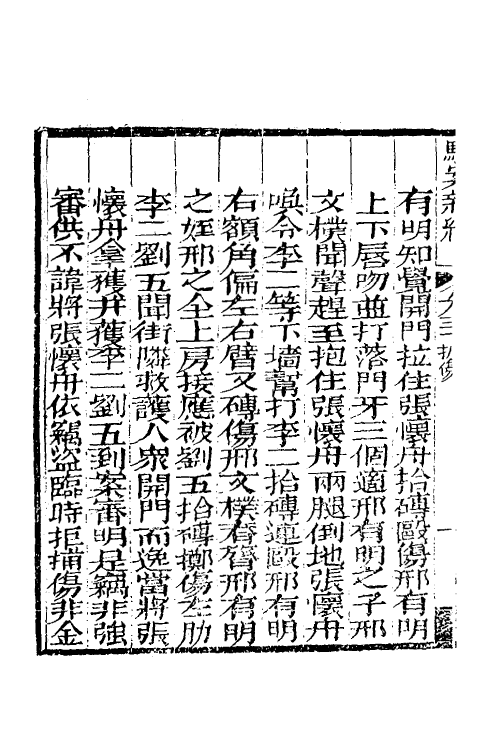 有明知覺開門拉住張懷舟拾磚毆傷邢有明
上下唇吻並打落門牙三個適邢有明之子邢
文樸聞聲趕至抱住張懷舟兩腿倒地張懷舟
喚令李二等下墻幫打李二拾磚連毆邢有明
右額角偏左右臂又磚傷邢文樸脊膂邢有明
之姪邢之全上房接應被劉五拾磚擲傷左肋
李二劉五聞街隣救護人衆開門而逸當將張
懷舟拿獲并獲李二劉五到案審明是竊非強
審供不諱將張懷舟依竊盜臨時拒捕傷非金